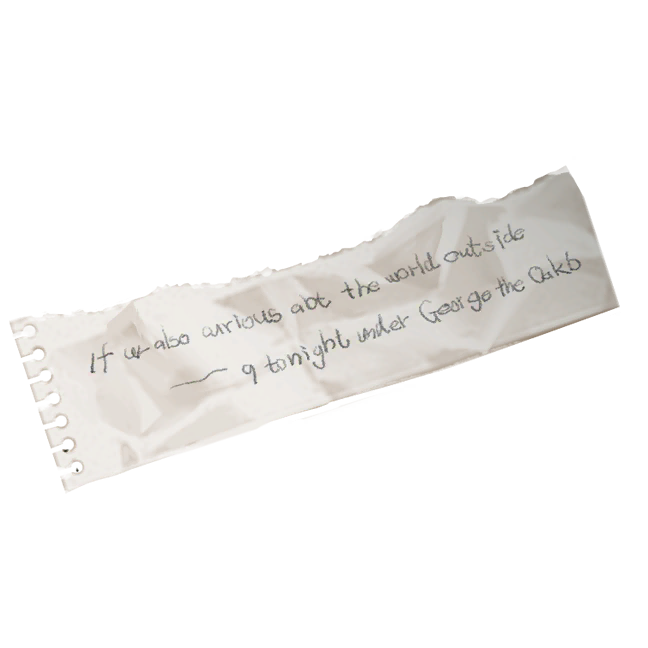 If ur also curious abt the world outside
— 9 tonight under George the Oak